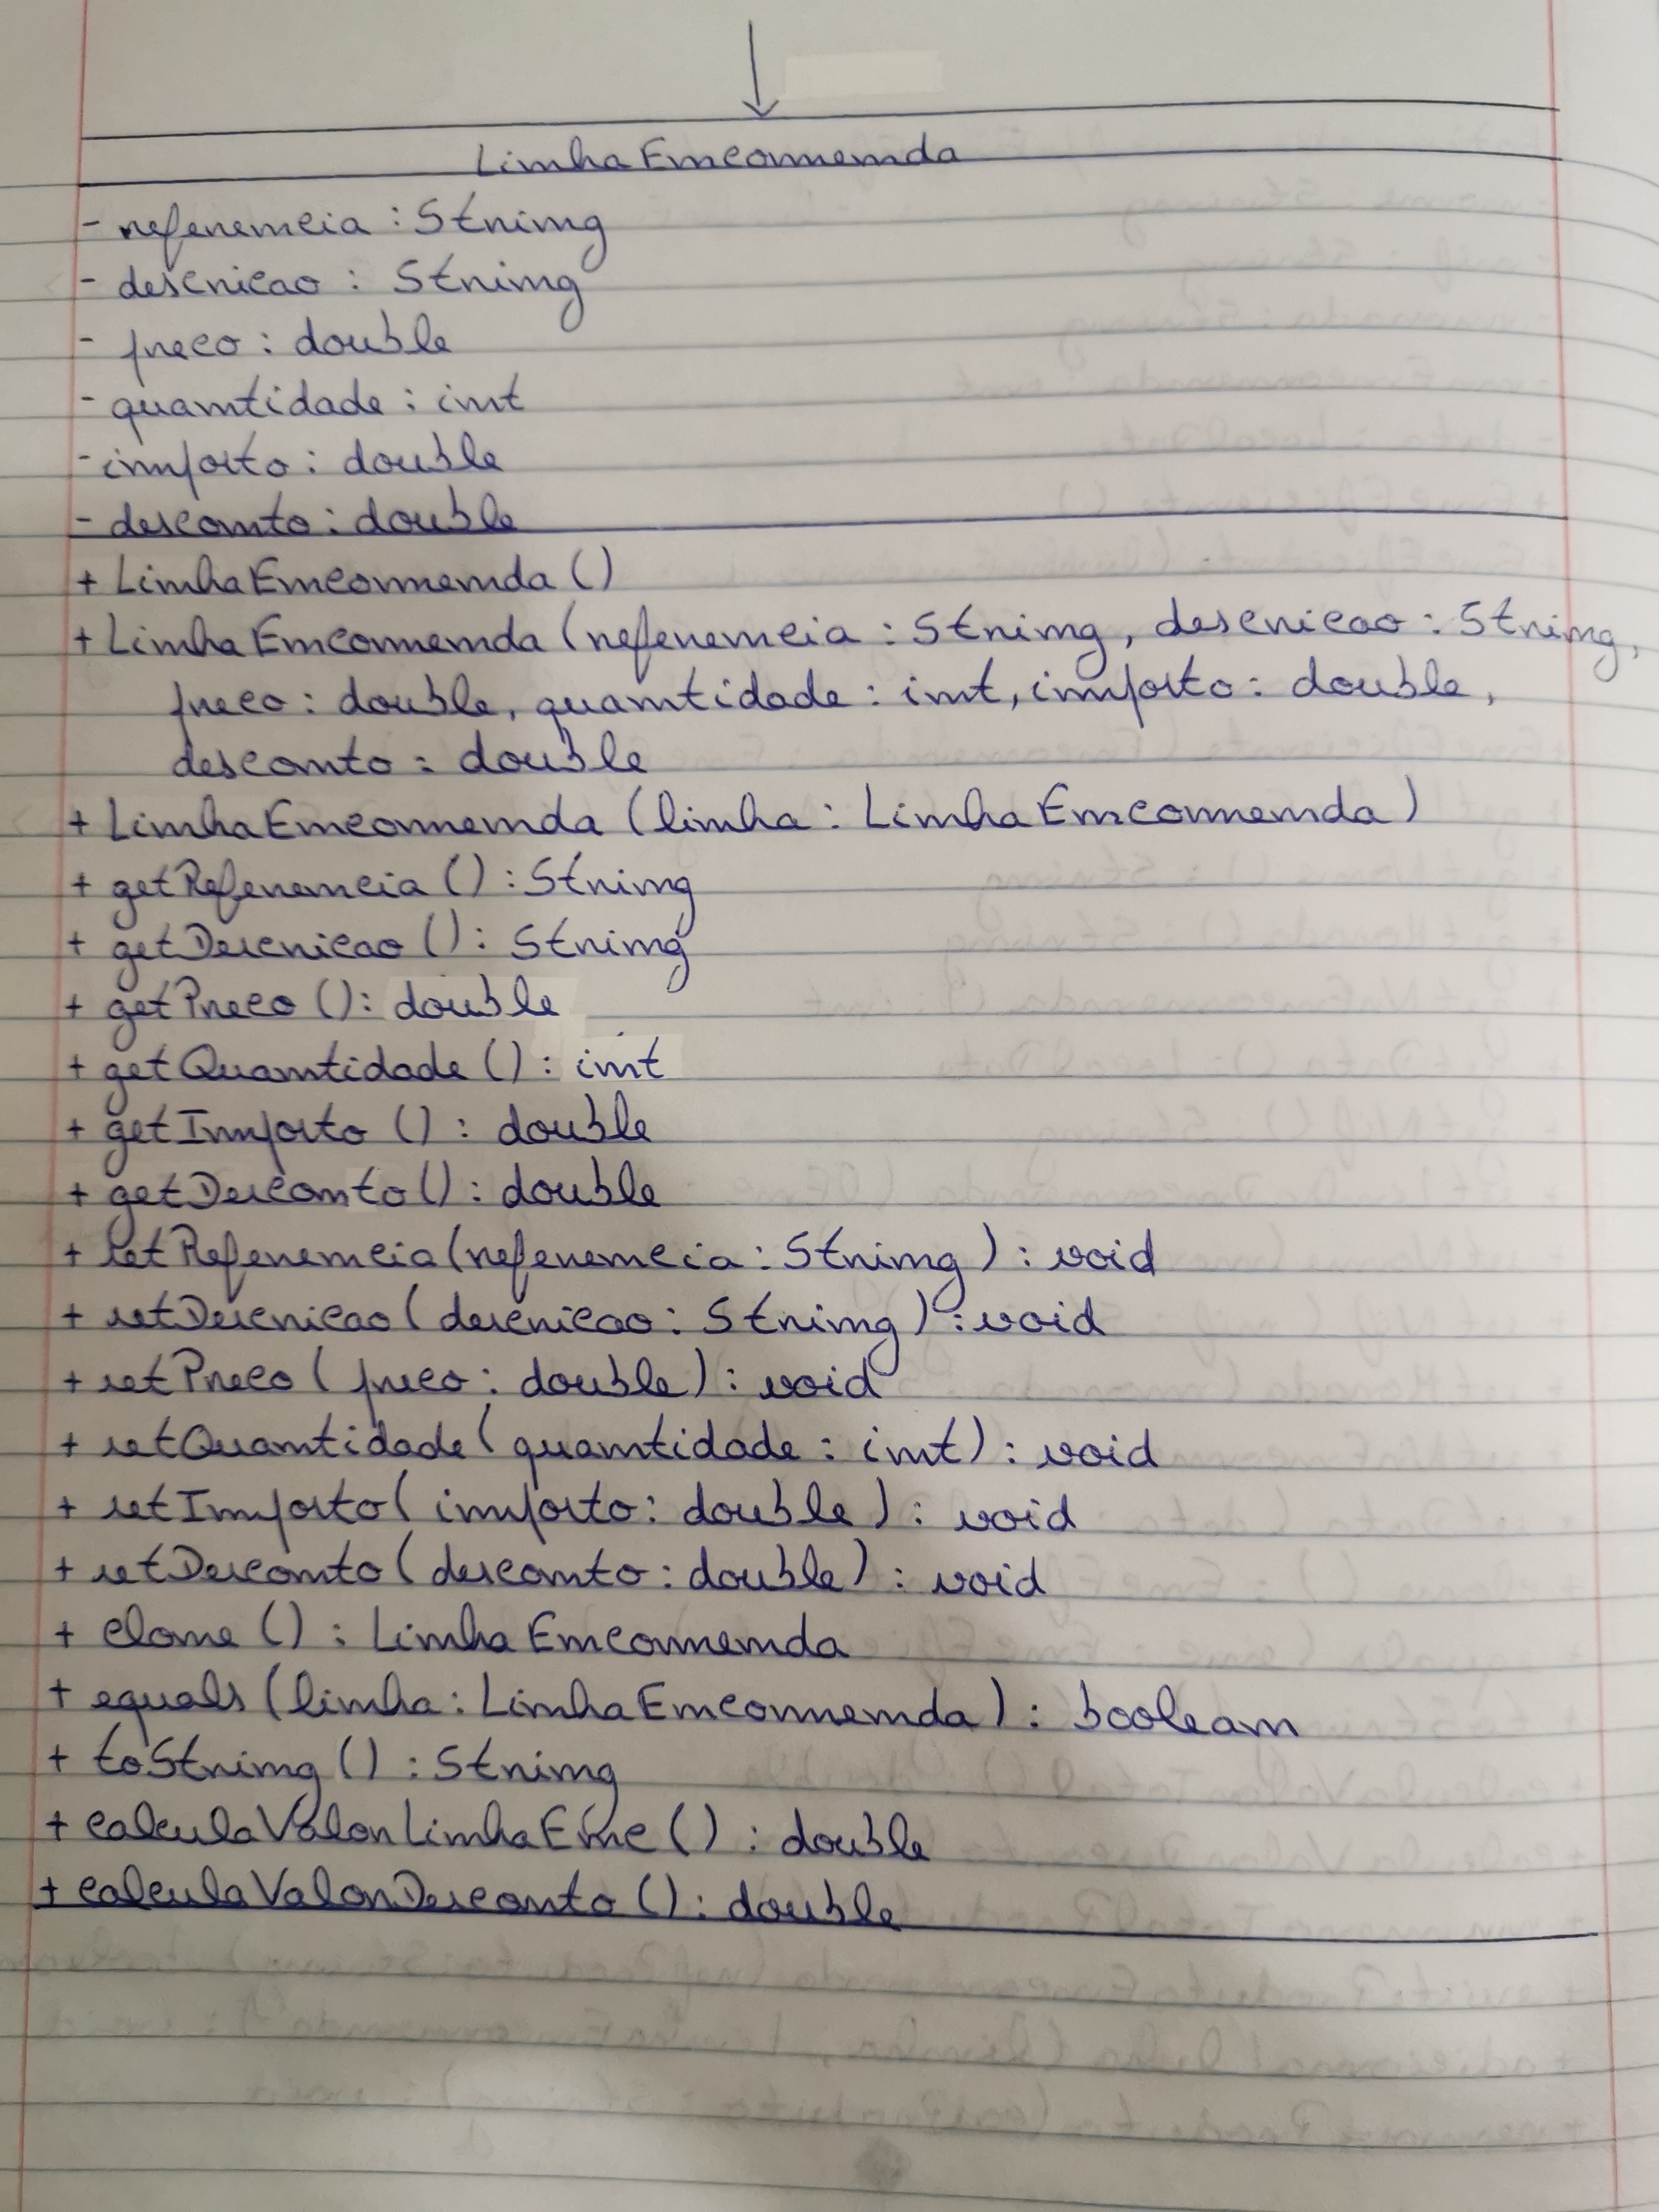 LinhaEncomenda
- referencia : String
- descricao : String
- preco : double
- quantidade : int
- imposto : double
- desconto : double
+ LinhaEncomenda ()
+ LinhaEncomenda (referencia : String, descricao : String,
preco : double, quantidade : int, imposto : double,
desconto : double
+ LinhaEncomenda (linha : LinhaEncomenda)
+ getReferencia () : String
+ getDescricao () : String
+ getPreco () : double
+ getQuantidade () : int
+ getImposto () : double
+ getDesconto () : double
+ setReferencia (referencia : String) : void
+ setDescricao (descricao : String) : void
+ setPreco (preco : double) : void
+ setQuantidade (quantidade : int) : void
+ setImposto (imposto : double) : void
+ setDesconto (desconto : double) : void
+ clone () : LinhaEncomenda
+ equals (linha : LinhaEncomenda) : boolean
+ toString () : String
+ calculaValorLinhaEnc () : double
+ calculaValorDesconto () : double